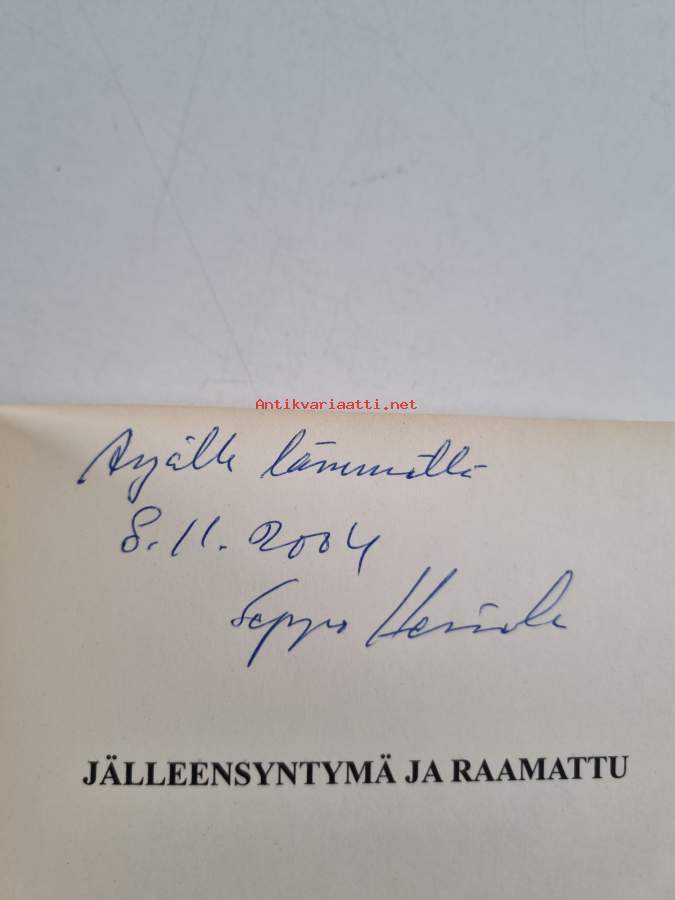 Antikvariaatti.net
Arjalle lämmöllä
8.11.2004
Seppo
JÄLLEENSYNTYMÄ JA RAAMATTU